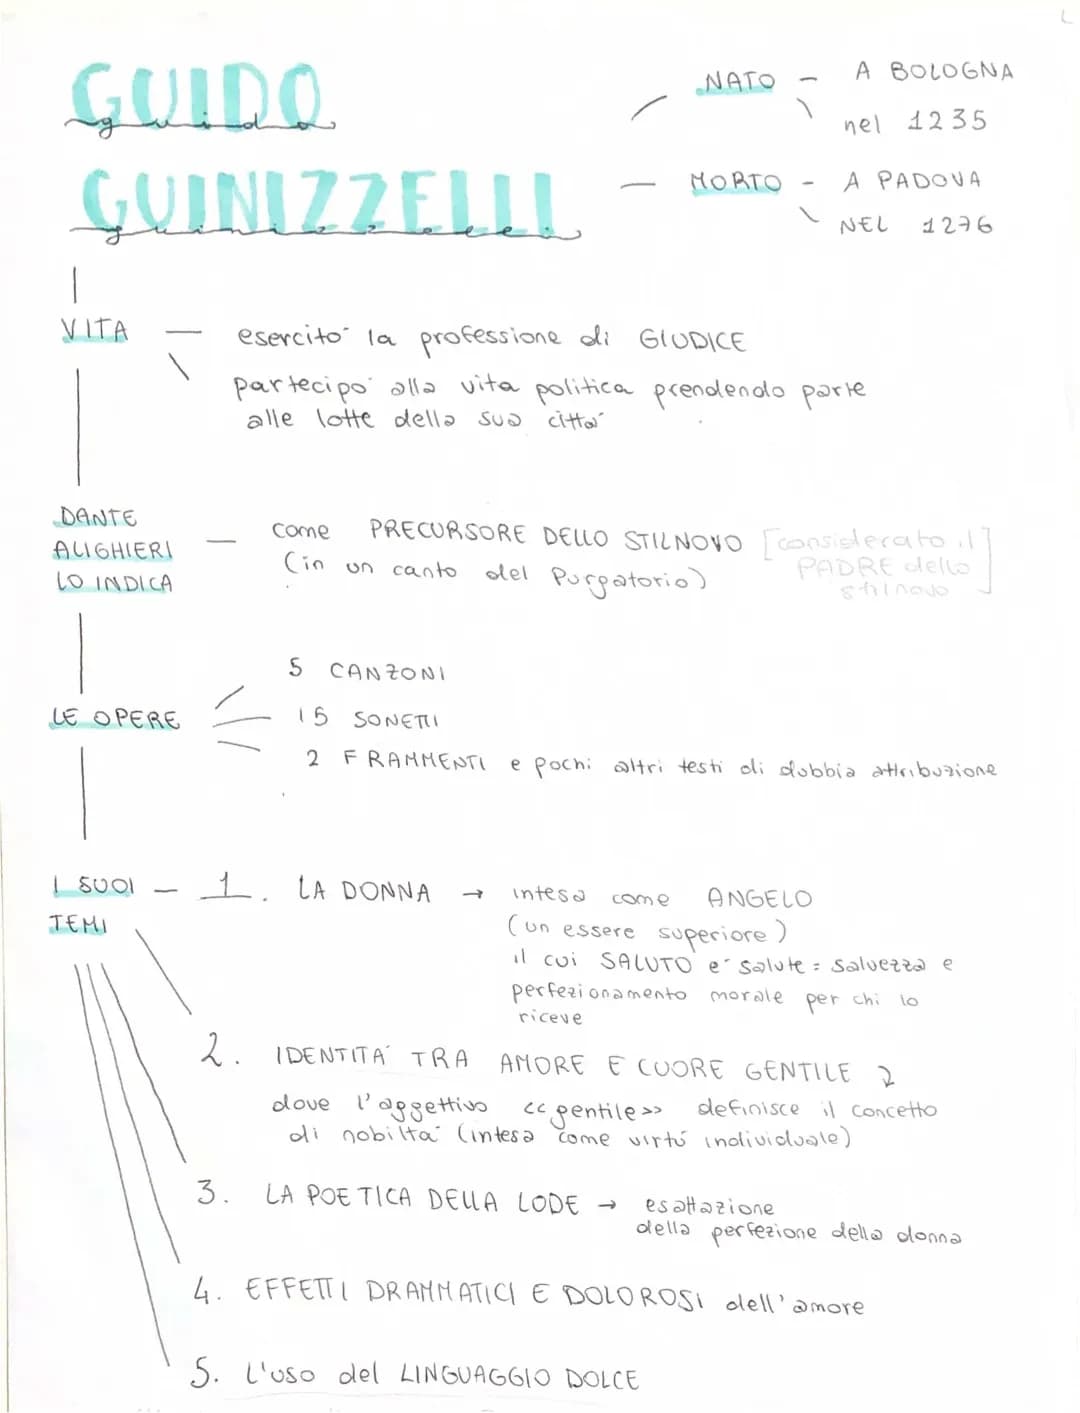 GUIDO
guido
GUINIZZELLI
guinizzelli
NATO - A BOLOGNA
nel 1235
MORTO - A PADOVA
NEL 1276
VITA — esercito´ la professione di GIUDICE
partecipo´ alla vita politica prendendo parte
alle lotte della sua citta´
DANTE
ALIGHIERI
LO INDICA
come PRECURSORE DELLO STILNOVO [considerato il]
(in un canto del Purgatorio) PADRE dello
stilnovo
LE OPERE
5 CANZONI
15 SONETTI
2 FRAMMENTI e pochi altri testi di dubbia attribuzione
I SUOI — 1. LA DONNA → intesa come ANGELO
TEMI
(un essere superiore)
il cui SALUTO e´ salute = salvezza e
perfezionamento morale per chi lo
riceve
2. IDENTITA´ TRA AMORE E CUORE GENTILE
dove l'aggettivo <<gentile>> definisce il concetto
di nobilta´ (intesa come virtú individuale)
3. LA POETICA DELLA LODE → esaltazione
della perfezione della donna
4. EFFETTI DRAMMATICI E DOLOROSI dell'amore
5. L'uso del LINGUAGGIO DOLCE